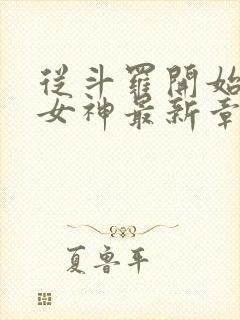 從斗羅開始
女神最新章
夏魯平